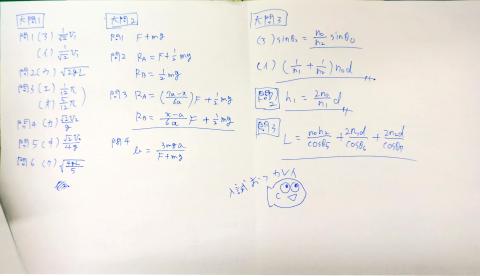 大問1
問1 (ア) 1/√2 V₁
(イ) 1/√2 V₁
問2 (ウ) √2gL
問3 (エ) 1/12 π
(オ) 5/12 π
問4 (カ) √2V₀/g
問5 (キ) √2V₀/4g
問6 (ク)
大問2
問1 F+mg
問2 R_A = F+1/2 mg
R_B = 1/2 mg
問3 R_A = (7a-x/6a)F + 1/2 mg
R_B = x-a/6a F + 1/2 mg
問4
b = 3mga/F+mg
大問3
(ア) sinθ₂ = n₀/n₂ sinθ₀
(イ) (1/n₁ + 1/n₂) n₀d
問2 h₁ = 2n₀/n₁ d
問3
L = n₀h₂/cosθ₅ + 2n₁d/cosθ₆ + 2n₂d/cosθ₇
入試おつカレイ